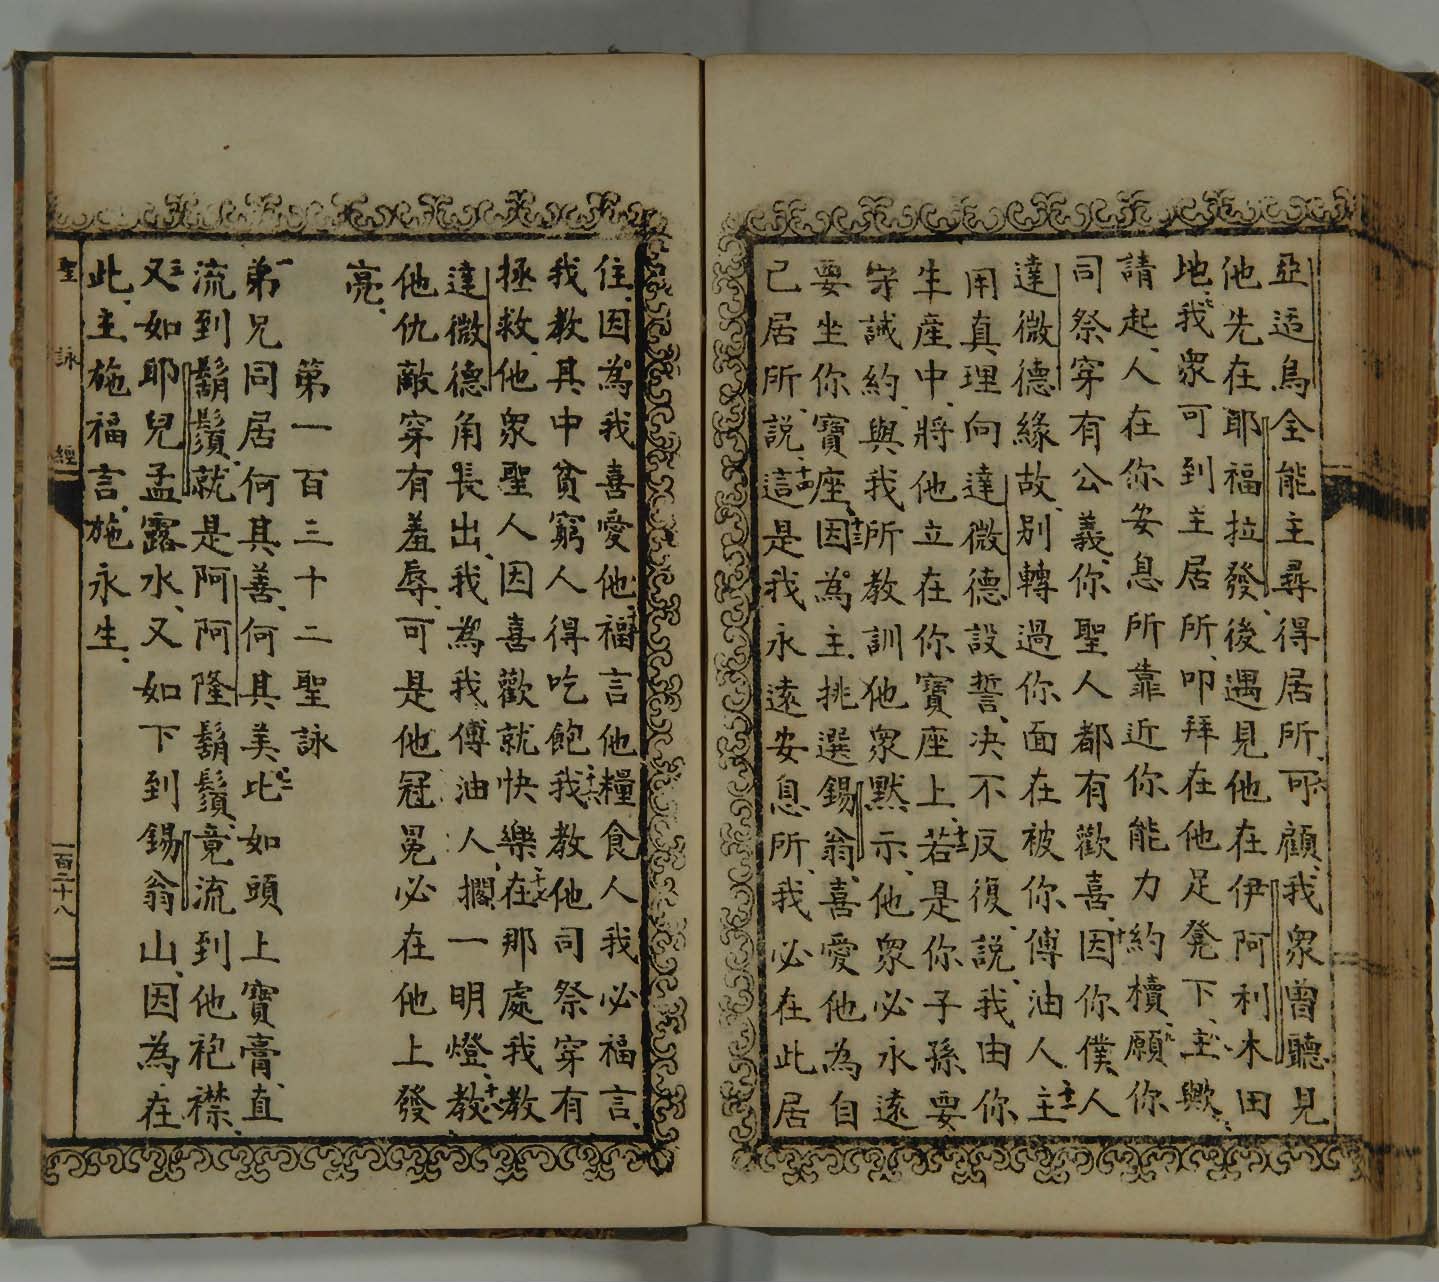 亞适烏全能主尋得居所、可顧、我衆曾聽見
他先在耶福拉發、後遇見他在伊阿利木田
地、我衆可到主居所、叩拜在他足凳下、主歟、
請起、人在你安息所靠近你能力約櫝、願你
司祭穿有公義、你聖人都有歡喜、因你僕人
達微德緣故、别轉過你面在被你傅油人、主
用真理向達微德設誓、决不反復、説、我由你
生産中、將他立在你寶座上、若是你子孫要
守誡約、與我所教訓他衆默示、他衆必永遠
要坐你寶座、因為主、挑選錫翁、喜愛他為自
己居所、説、這是我永遠安息所、我必在此居
住、因為我喜愛他、福言他糧食人、我必福言、
我教其中貧窮人得吃飽、我教他司祭穿有
拯救、他衆聖人因喜歡就快樂、在那處我教
達微德角長出、我為我傅油人、擱一明燈、教
他仇敵穿有羞辱、可是他冠冕必在他上發
亮、
第一百三十二聖詠
一弟兄同居何其善、何其美、比如頭上寶膏、直
流到鬍鬚、就是阿阿隆鬍鬚、竟流到他袍襟、
三又如耶兒孟露水、又如下到錫翁山、因為在
此、主施福言、施永生、
聖詠經
一百二十八